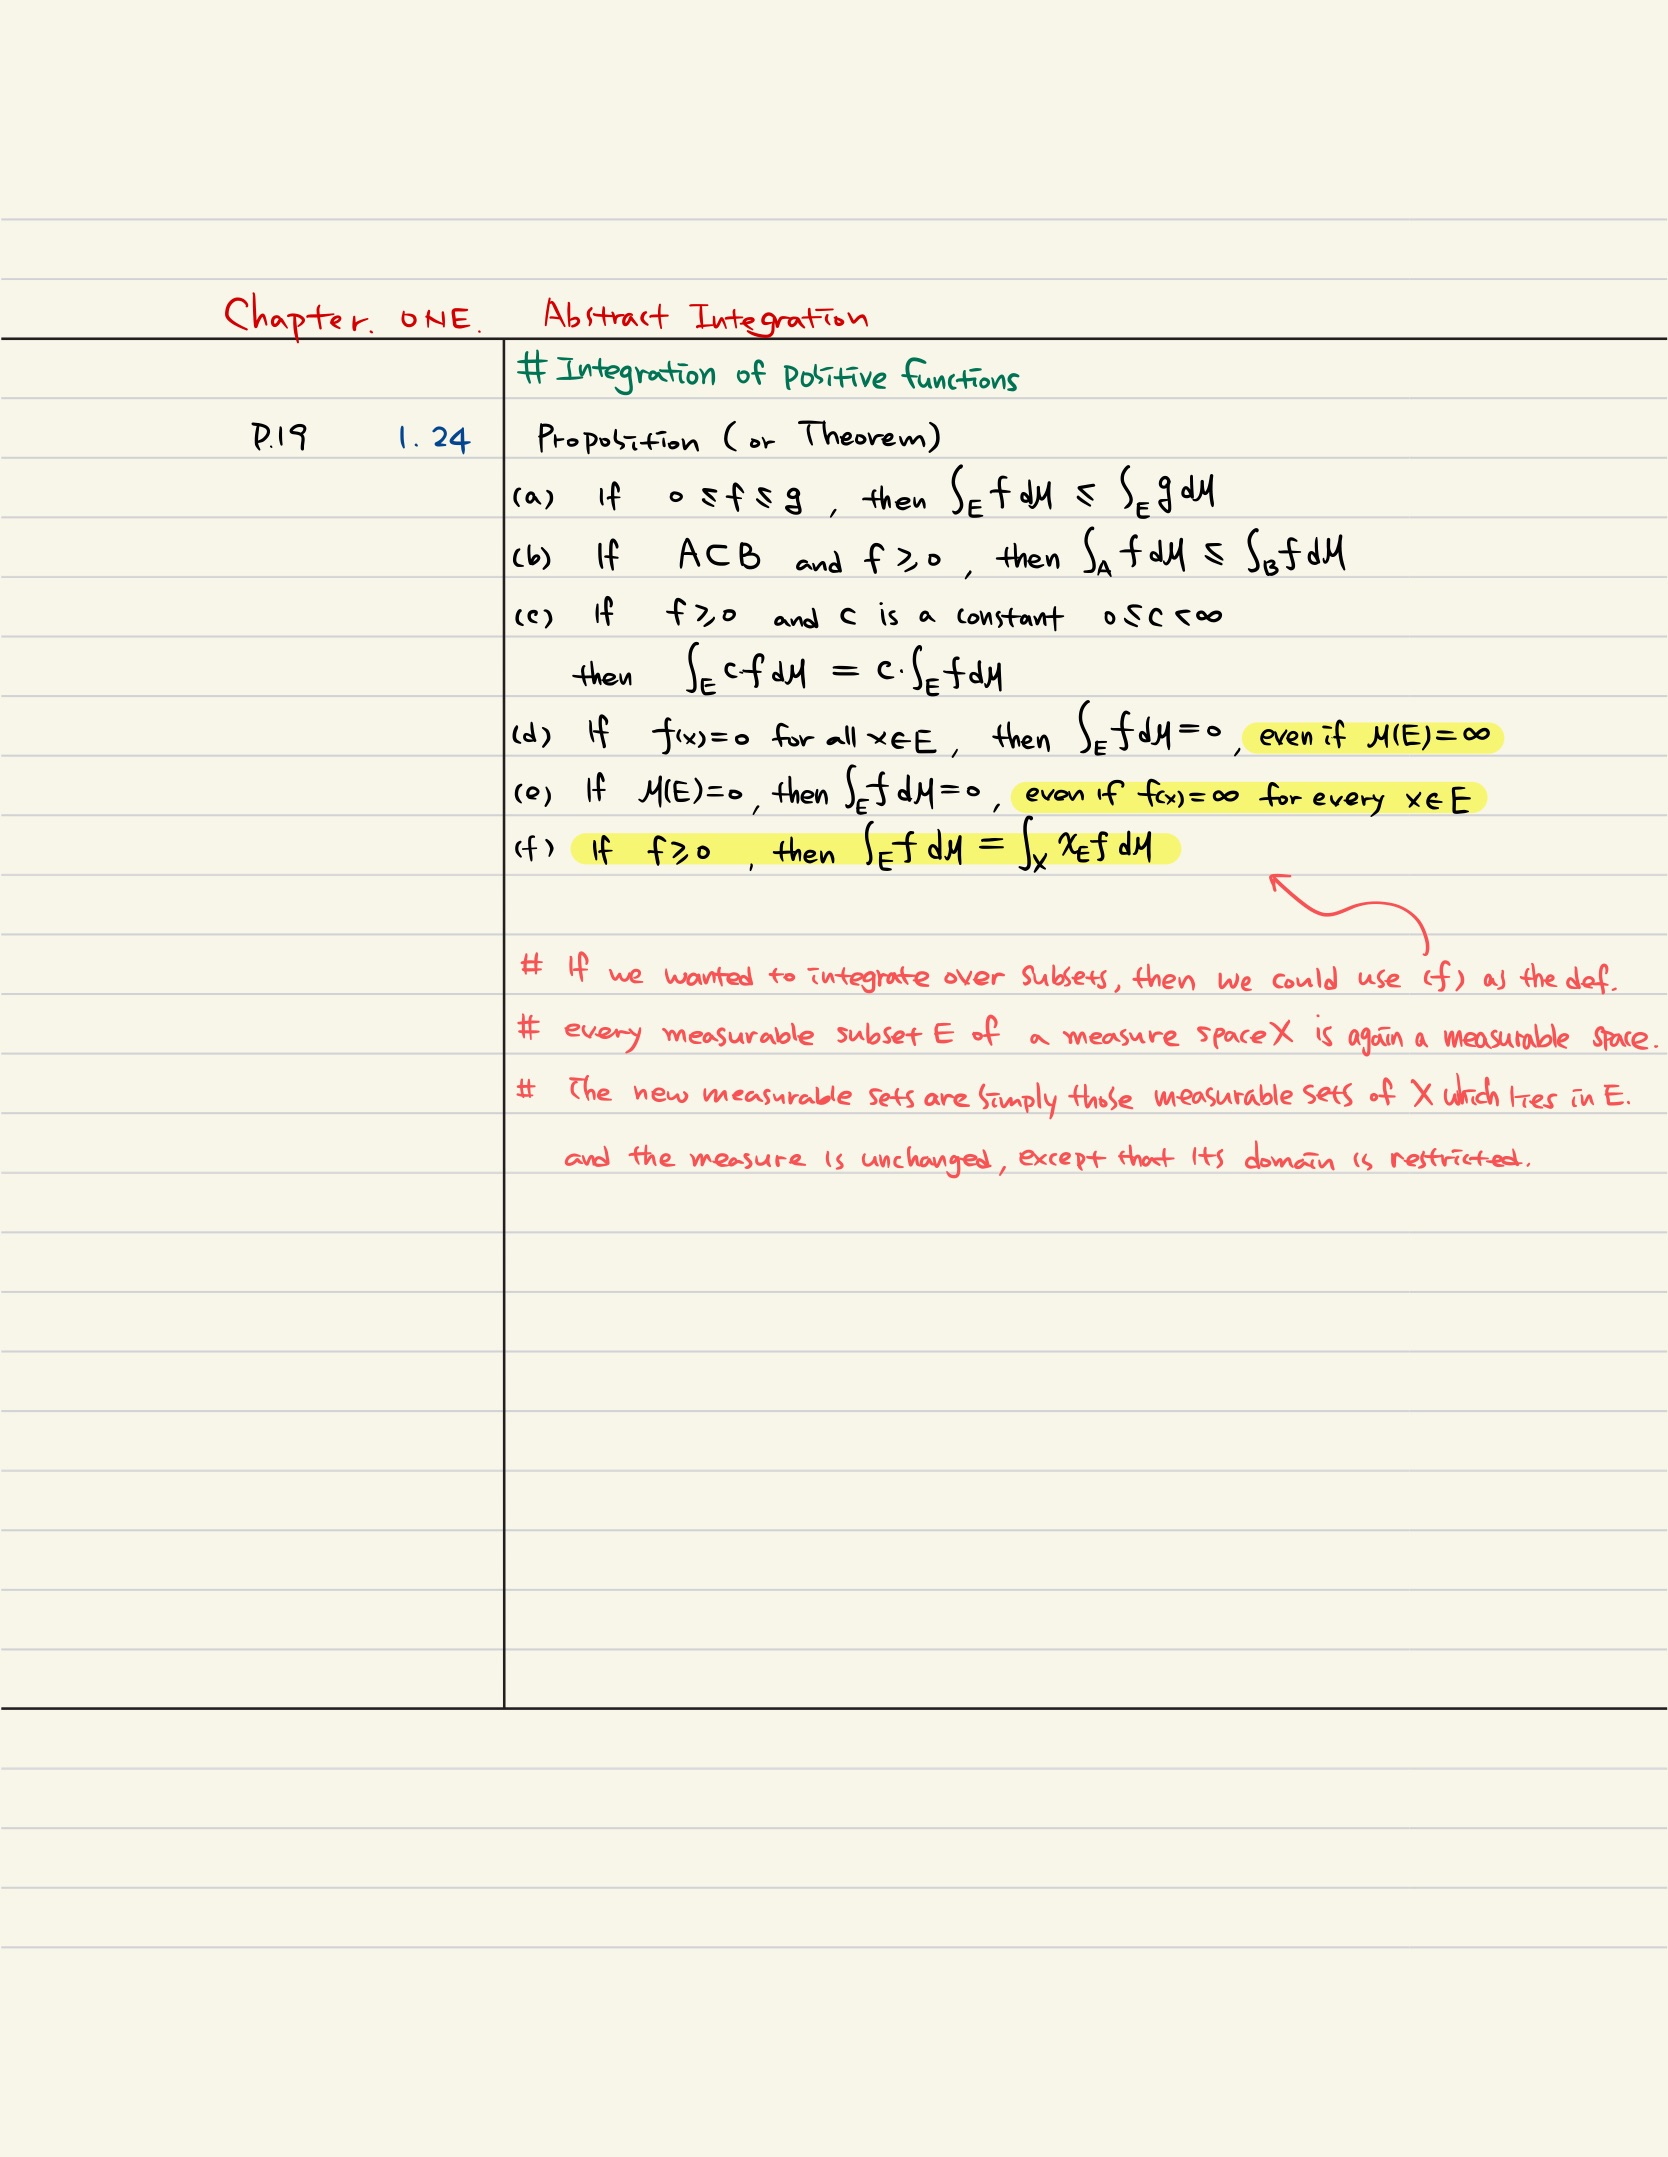 Chapter. ONE. Abstract Integration
# Integration of positive functions
P.19 1.24 Proposition (or Theorem)
(a) If 0 ≤ f ≤ g, then ∫_E f dμ ≤ ∫_E g dμ
(b) If A⊂B and f ≥ 0, then ∫_A f dμ ≤ ∫_B f dμ
(c) If f ≥ 0 and c is a constant 0 ≤ c < ∞
then ∫_E c·f dμ = c·∫_E f dμ
(d) If f(x)=0 for all x∈E, then ∫_E f dμ=0, even if μ(E)=∞
(e) If μ(E)=0, then ∫_E f dμ=0, even if f(x)=∞ for every x∈E
(f) If f ≥ 0, then ∫_E f dμ = ∫_X χ_E f dμ
# If we wanted to integrate over subsets, then we could use (f) as the def.
# every measurable subset E of a measure space X is again a measurable space.
# The new measurable sets are simply those measurable sets of X which lies in E.
and the measure is unchanged, except that its domain is restricted.